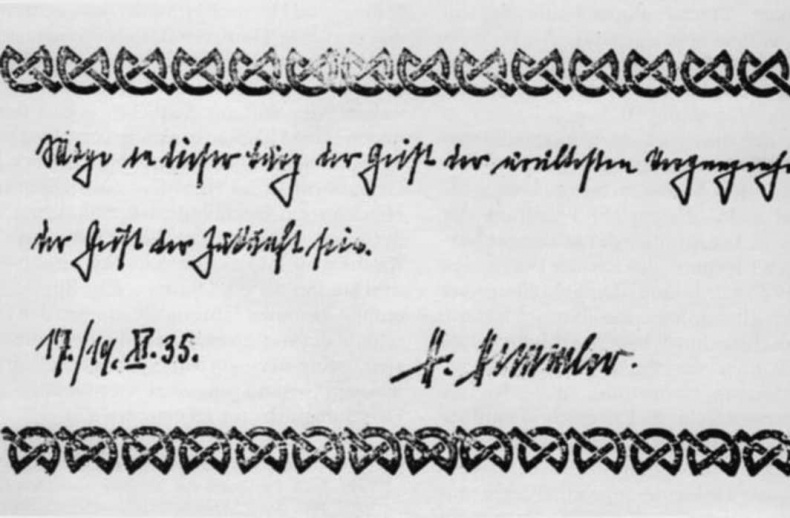 Möge in dieser Burg der Geist der uraltesten
der Geist der Zukunft sein.
17./19. XI. 35.
H. Himmler.